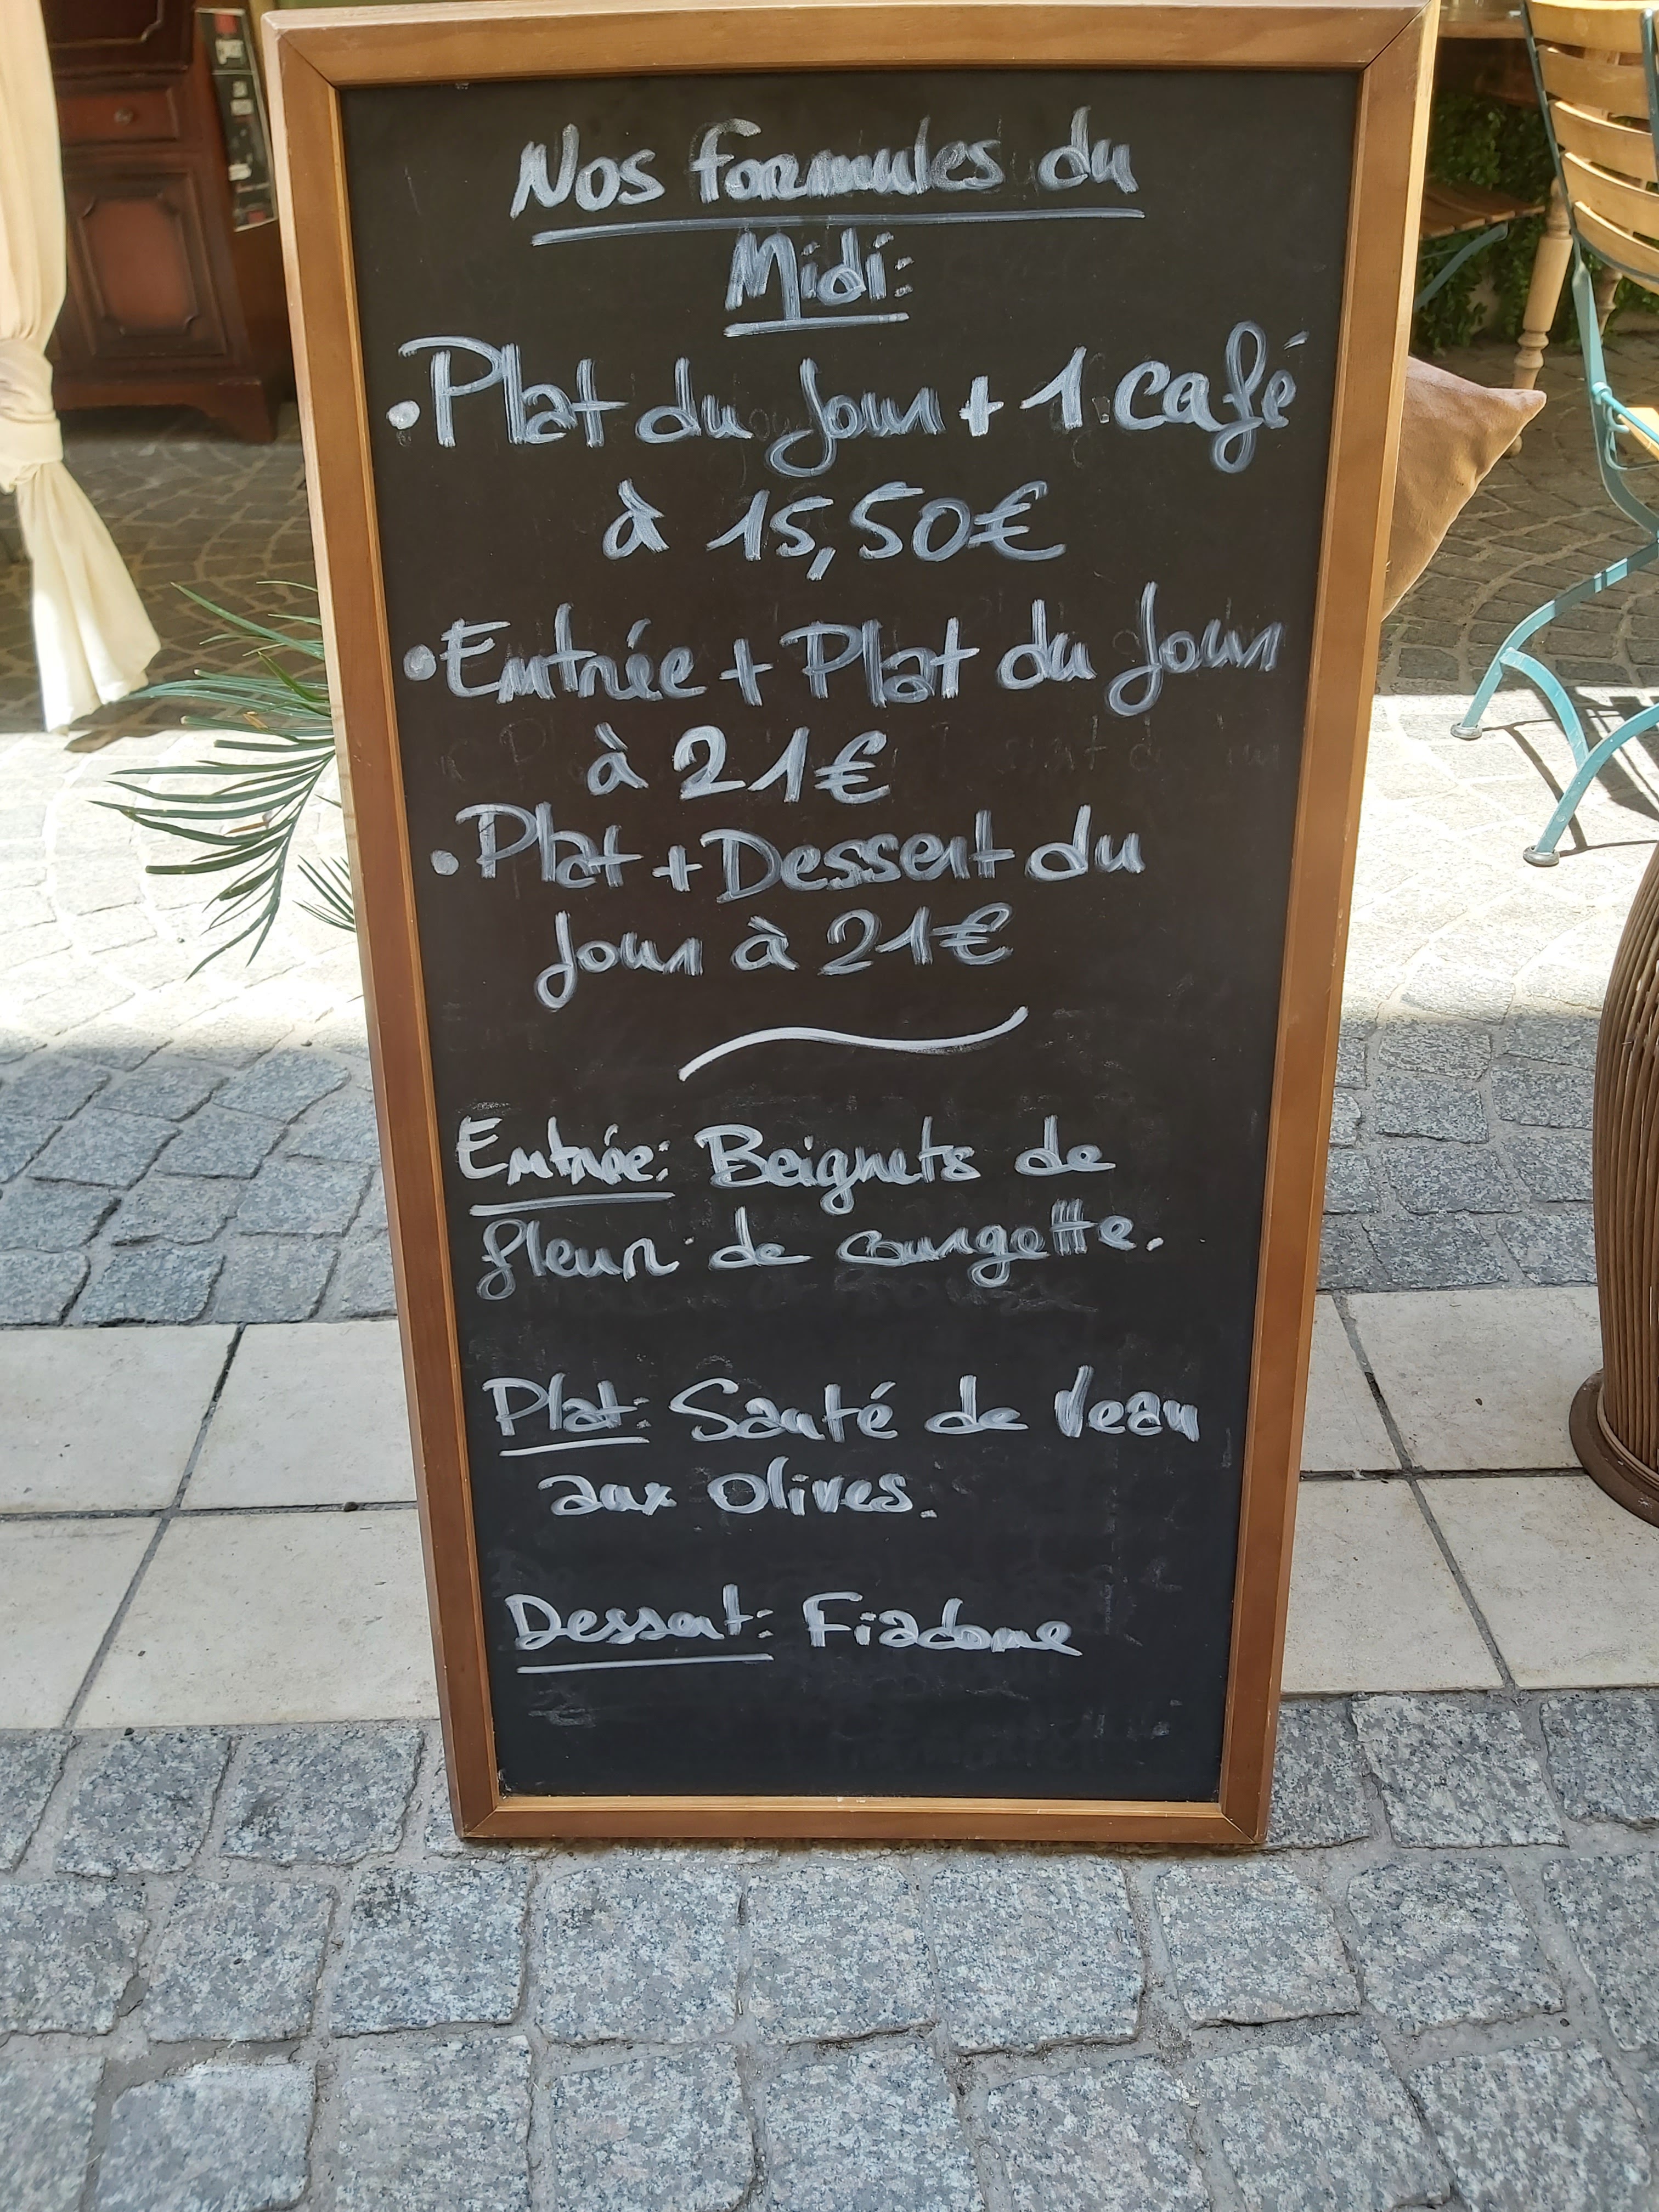 Nos formules du
Midi:
• Plat du jour + 1 café
à 15,50€
• Entrée + Plat du jour
à 21€
• Plat + Dessert du
jour à 21€
Entrée: Beignets de
fleur de courgette.
Plat: Sauté de Veau
aux Olives.
Dessert: Fiadone